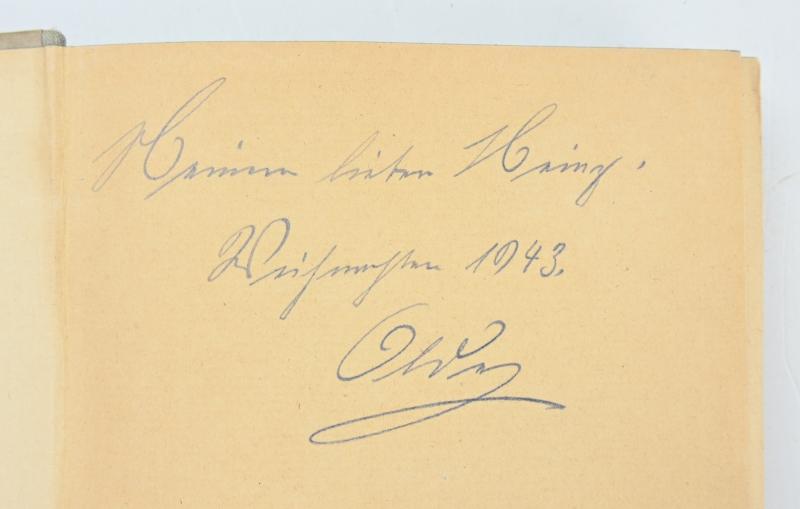 Meinem lieben Heinz.
Weihnachten 1943.